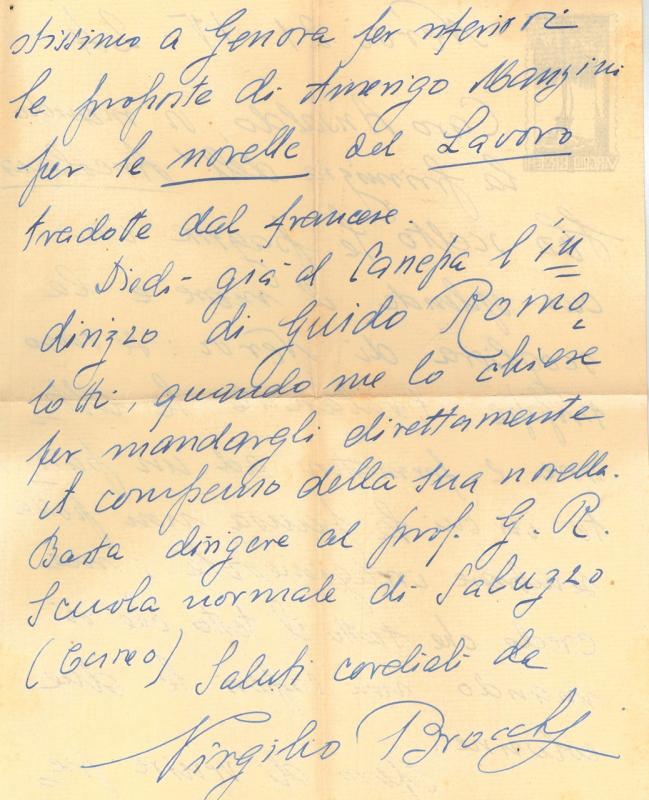 stissimo a Genova per riferirvi
le proposte di Amerigo Manzini
per le novelle del Lavoro
tradotte dal francese.
Diedi già al Canepa l'in
dirizzo di Guido Romo
lotti, quando me lo chiese
per mandargli direttamente
il compenso della sua novella.
Basta dirigere al prof. G. R.
Scuola normale di Saluzzo
(Cuneo) Saluti cordiali da
Virgilio Brocchi